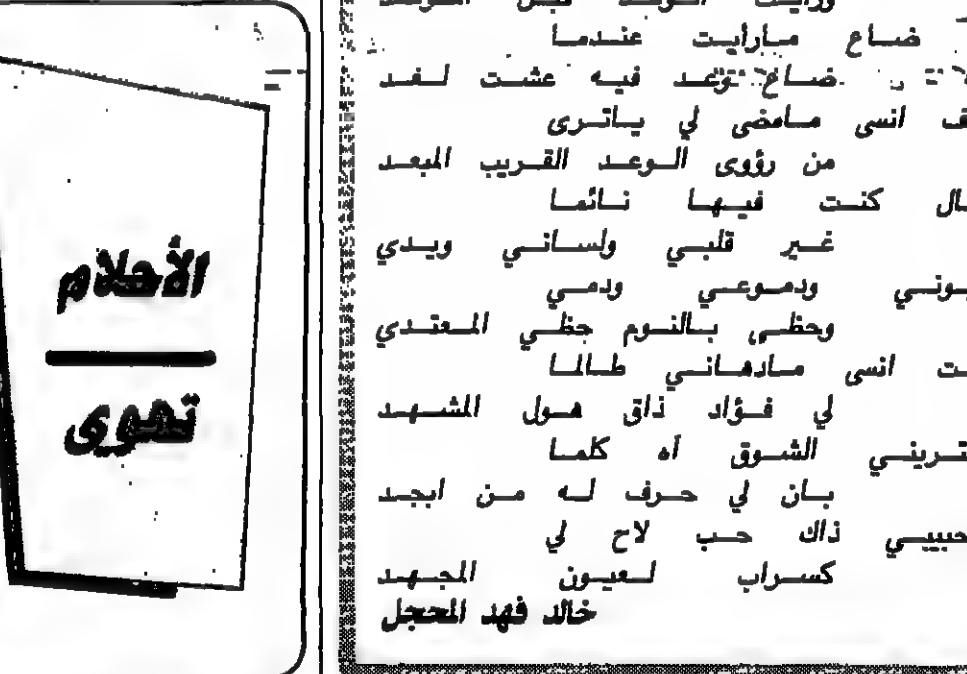 ضاع مارأيت عندما
ضاع وعد فيه عشت لغد
انسى مامضى لي ياترى
من رؤوى الوعد القريب المبعد
كنت فيها نائما
غير قلبي ولساني ويدي
ودموعي ودمي
وحظي بالنوم جظي المعتدي
انسى مادهاني طالما
لي فؤاد ذاق هول المشهد
الشوق أه كلما
بان لي حرف له من ابجد
حبيبي ذاك حب لاح لي
كسراب لعيون المجهد
خالد فهد المحجل
الأحلام
تهوى